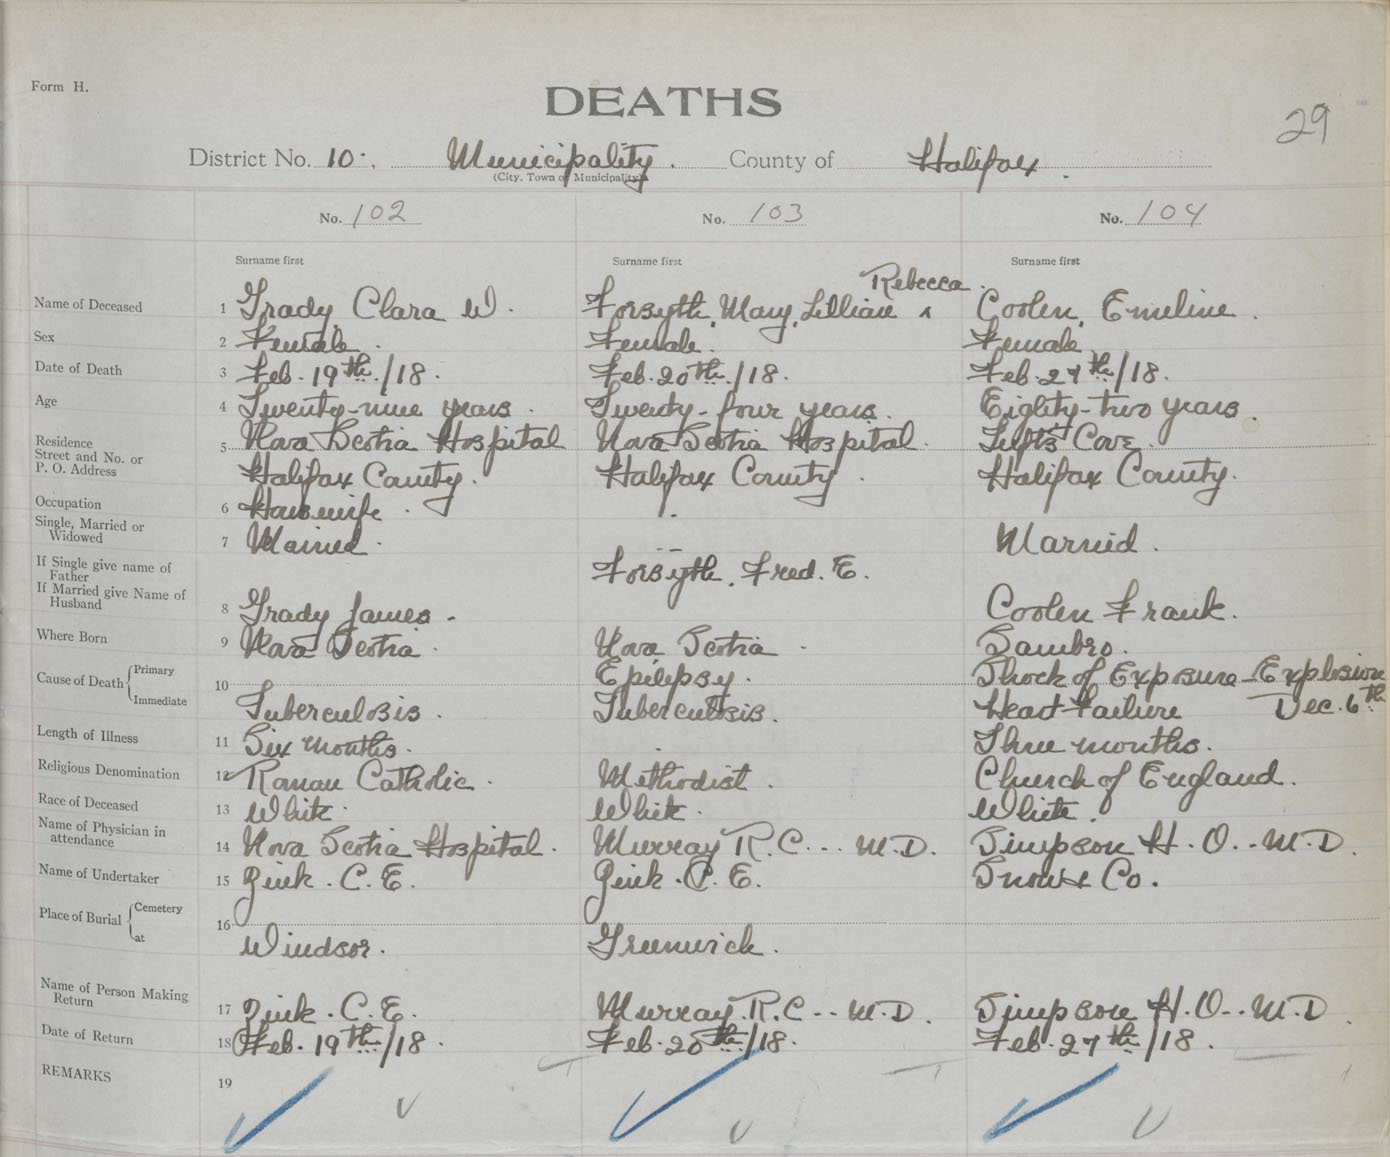 Form H.
DEATHS
29
District No. 10. Municipality. County of Halifax.
(City, Town or Municipality)
No. 102 No. 103 No. 104
Surname first Surname first Surname first
Rebecca.
Name of Deceased 1 Grady Clara W. Forsyth, Mary, Lillian ʌ Coolen, Emeline.
Sex 2 Female. Female. Female
Date of Death 3 Feb. 19th/18. Feb. 20th/18. Feb. 27th/18.
Age 4 Twenty-nine years. Twenty-four years. Eighty-two years.
Residence 5 Nova Scotia Hospital Nova Scotia Hospital. Tufts Cove.
Street and No. or
P. O. Address Halifax County. Halifax County. Halifax County.
Occupation 6 Housewife.
Single, Married or
Widowed 7 Married. -- Married.
If Single give name of
Father Forsyth, Fred. E.
If Married give Name of
Husband 8 Grady James. Coolen Frank.
Where Born 9 Nova Scotia. Nova Scotia. Sambro.
Cause of Death Primary 10 Epilepsy. Shock of Exposure-Explosion
Immediate Tuberculosis. Tuberculosis. Heart Failure Dec. 6th
Length of Illness 11 Six months. Three months.
Religious Denomination 12 Roman Catholic. Methodist. Church of England.
Race of Deceased 13 White. White. White.
Name of Physician in
attendance 14 Nova Scotia Hospital. Murray R.C... M.D. Simpson H.O.. M.D.
Name of Undertaker 15 Zink. C.E. Zink. C.E. Snow & Co.
Place of Burial Cemetery 16
at Windsor. Greenwich.
Name of Person Making
Return 17 Zink. C.E. Murray R.C.. M.D. Simpson H.O.. M.D.
Date of Return 18 Feb. 19th/18. Feb. 20th/18. Feb. 27th/18.
REMARKS 19